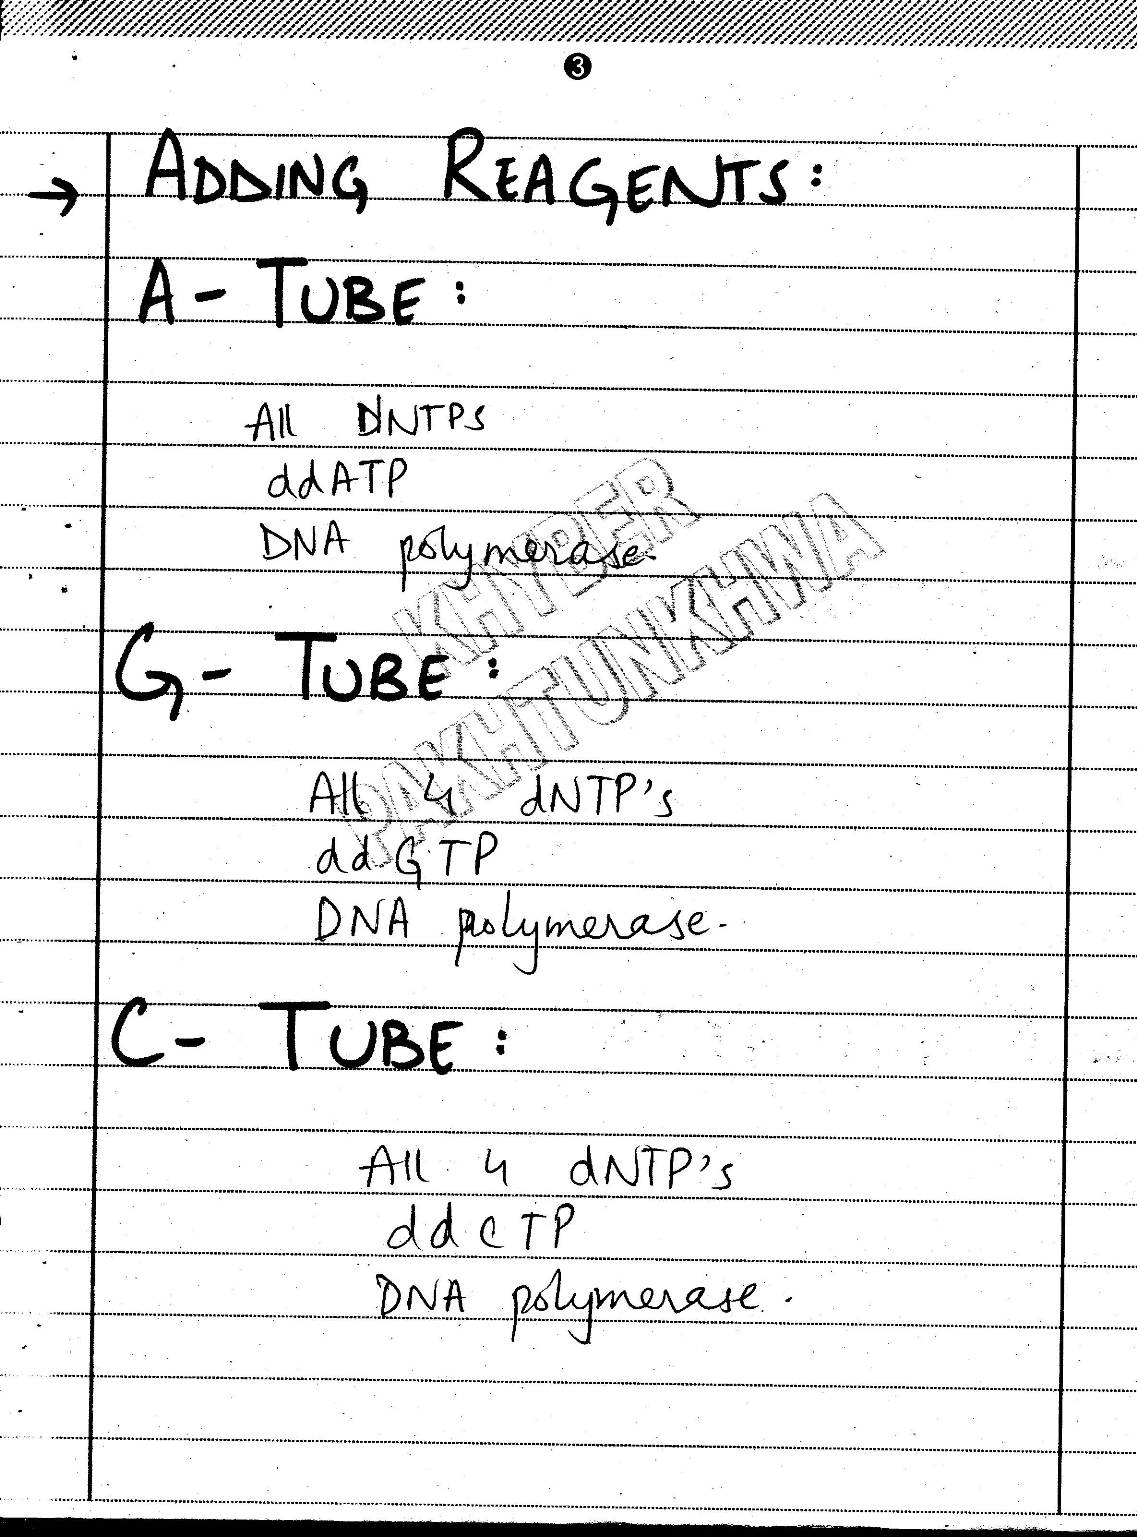 3
→ ADDING REAGENTS:
A - TUBE:
All DNTPS
ddATP
DNA polymerase.
KHYBER
PAKHTUNKHWA
G - TUBE:
All 4 dNTP's
ddGTP
DNA polymerase.
C - TUBE:
All 4 dNTP's
ddCTP
DNA polymerase.